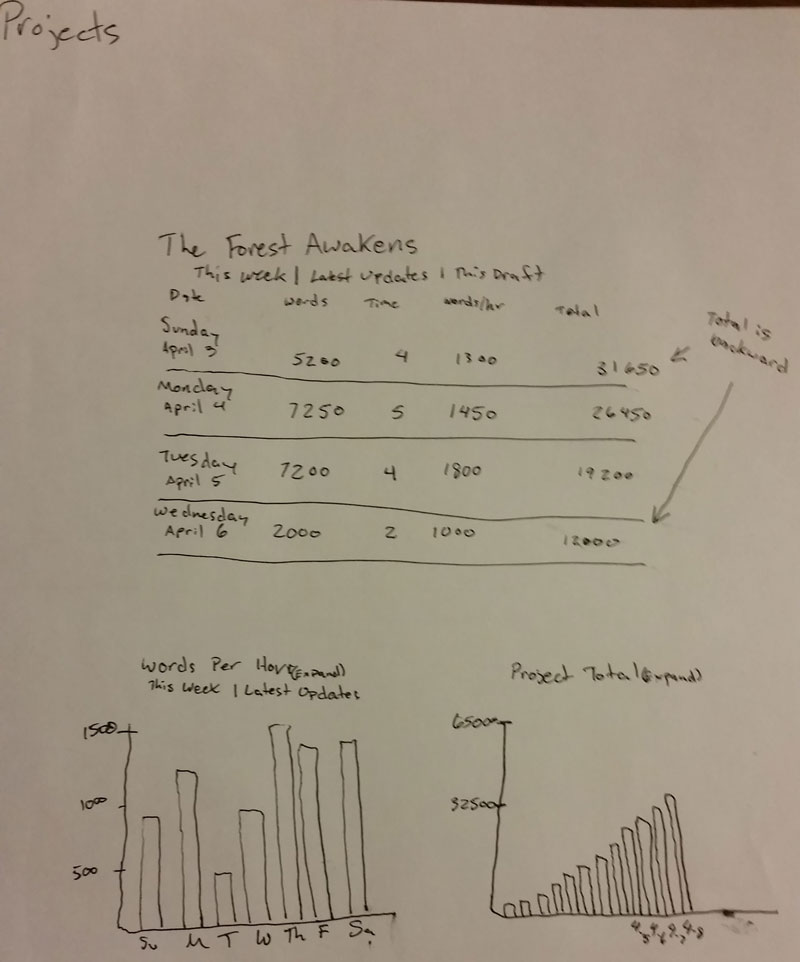 Projects
The Forest Awakens
This week | Latest Updates | This Draft
Date words Time words/hr Total
Sunday
April 3 5200 4 1300 31650
Total is
backward
Monday
April 4 7250 5 1450 26450
Tuesday
April 5 7200 4 1800 19200
Wednesday
April 6 2000 2 1000 12000
Words Per Hour (Expand)
This Week | Latest Updates
1500
1000
500
Su M T W Th F Sa
Project Total (Expand)
65000
32500